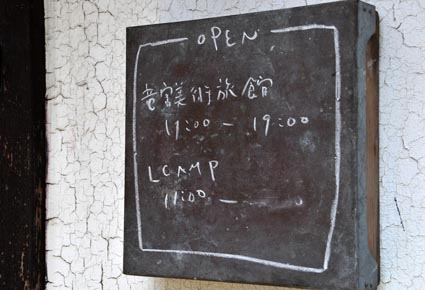 OPEN
老宅美術旅館
11:00 - 19:00
LCAMP
11:00 -